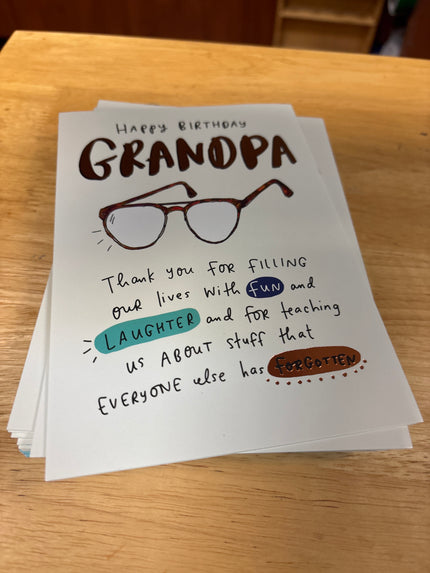 HAPPY BIRTHDAY
GRANDPA
Thank you FOR FILLING
OUR lives with FUN and
LAUGHTER and FOR teaching
us ABOUT stuff that
EVERYONE else has FORGOTTEN